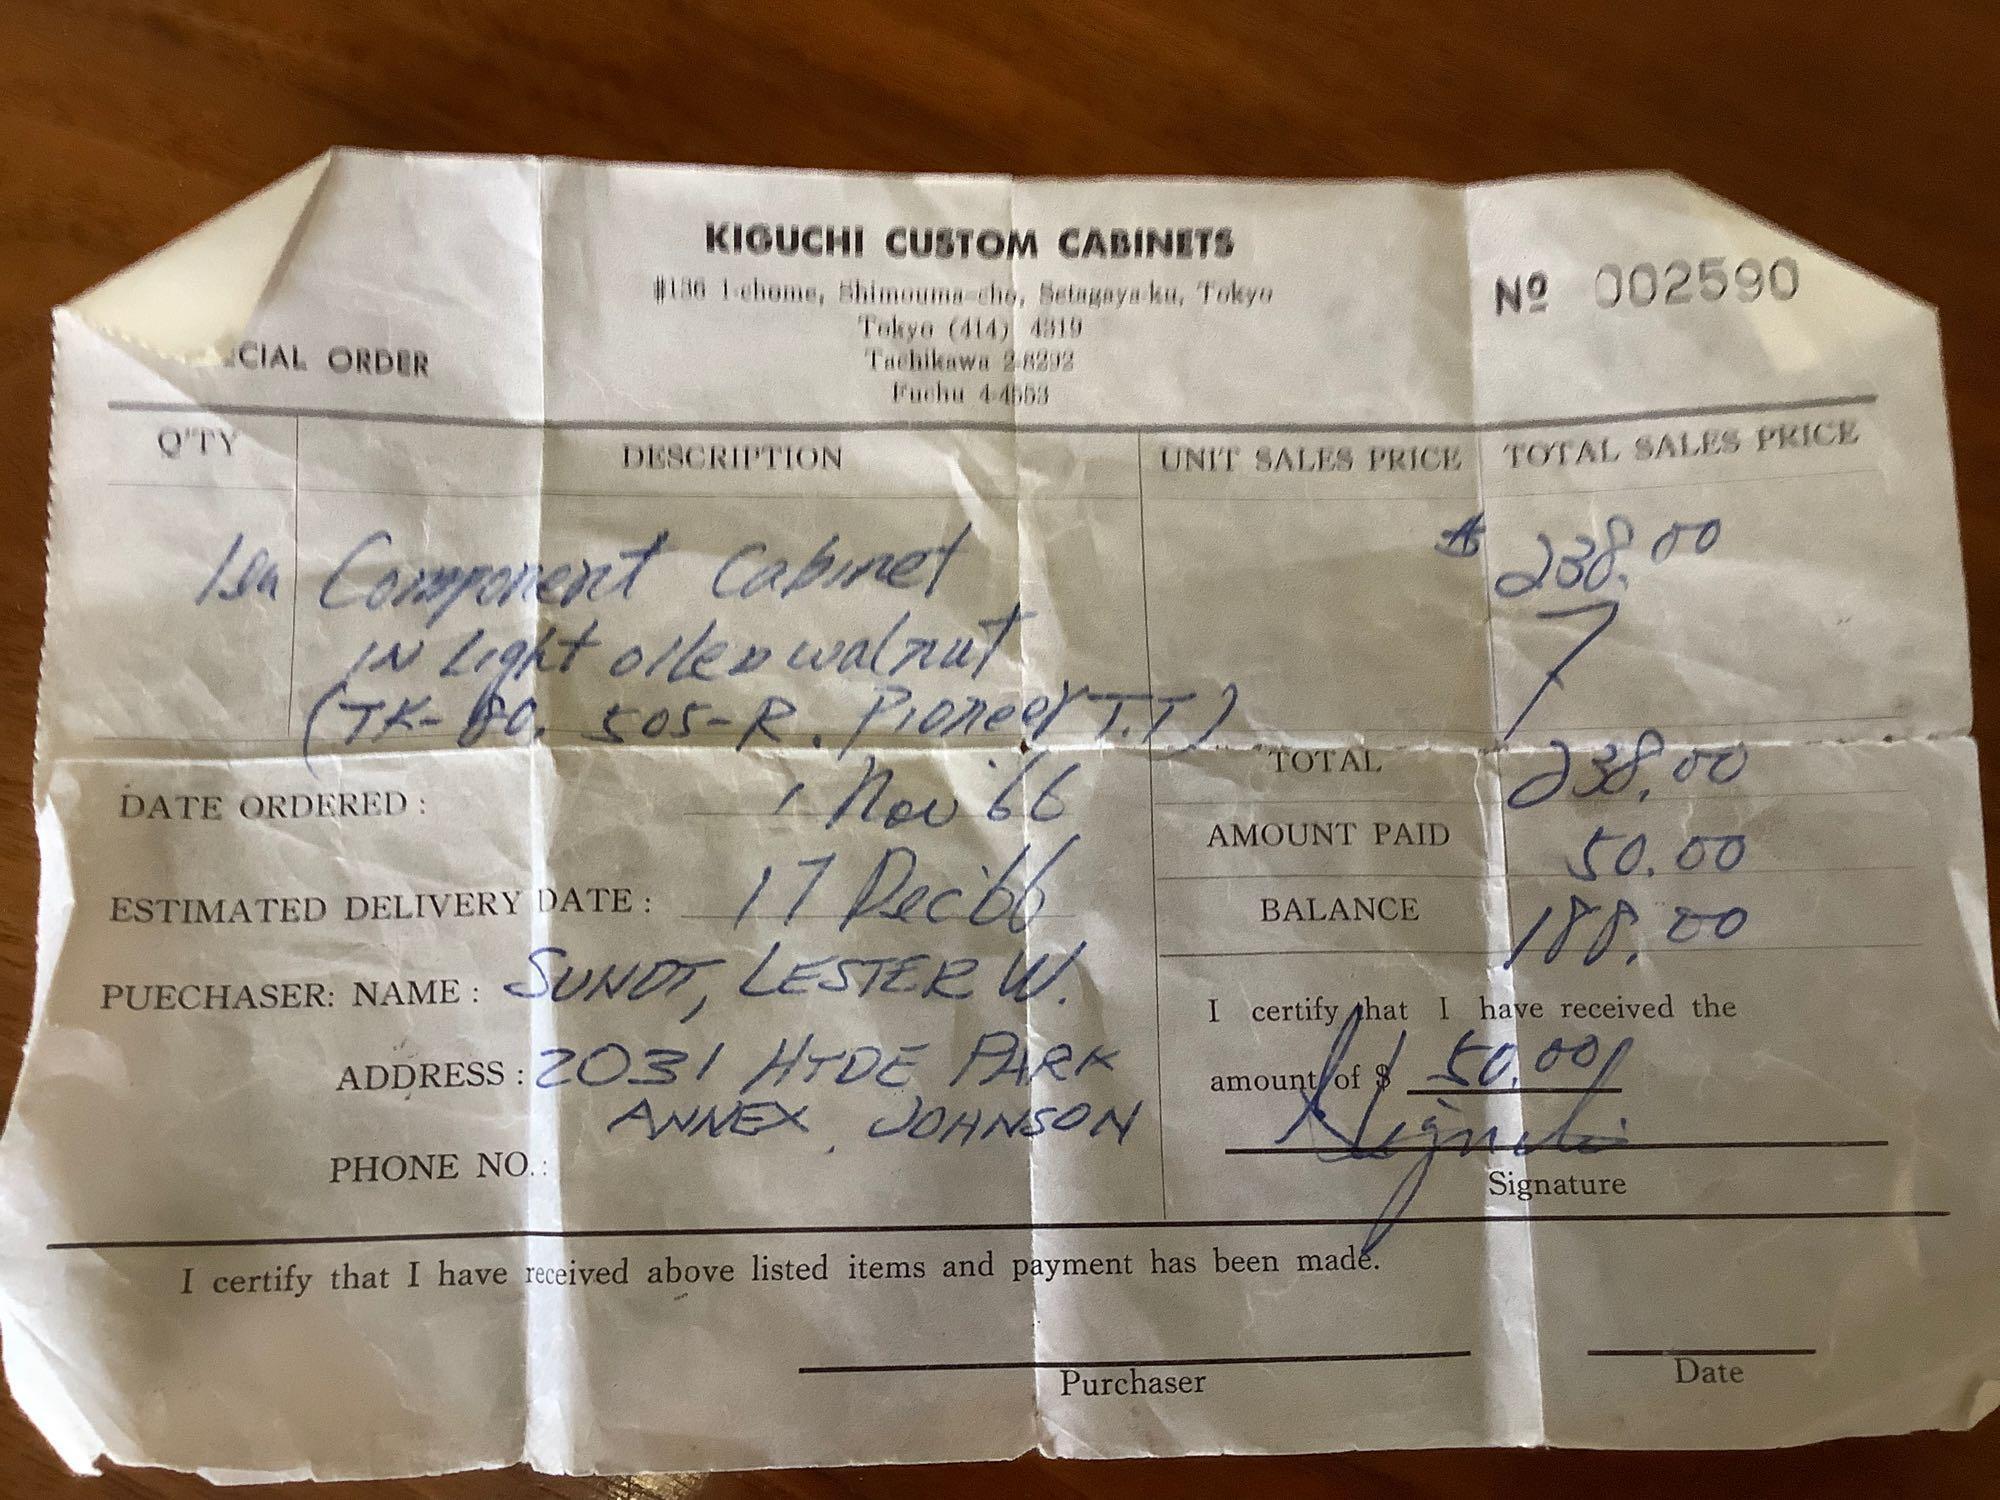 KIGUCHI CUSTOM CABINETS
#136 1-chome, Shimouma-cho, Setagaya-ku, Tokyo
Tokyo (414) 4319
Tachikawa 2-8292
Fuchu 4-4553
No 002590
CIAL ORDER
Q'TY DESCRIPTION UNIT SALES PRICE TOTAL SALES PRICE
1ea Component Cabinet $ 238.00
IN Light oiled walnut
(TK-80, 505-R, Pioneer T.T)
TOTAL 238.00
DATE ORDERED: 1 Nov '66
AMOUNT PAID 50.00
ESTIMATED DELIVERY DATE: 17 Dec '66
BALANCE 188.00
PUECHASER: NAME: SUNDT, LESTER W.
ADDRESS: 2031 HYDE PARK
ANNEX, JOHNSON
PHONE NO.:
I certify that I have received the
amount of $ 50.00
Signature
I certify that I have received above listed items and payment has been made.
Purchaser
Date